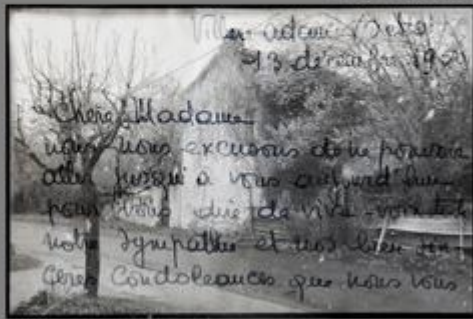 Villers-adam
13 décembre 19
Chère Madame
nous nous excusons de ne pouvoir
aller jusqu'à vous aujourd'hui
pour vous dire de vive-voix
notre sympathie et nos bien sin
ères Condoleances que nous vous